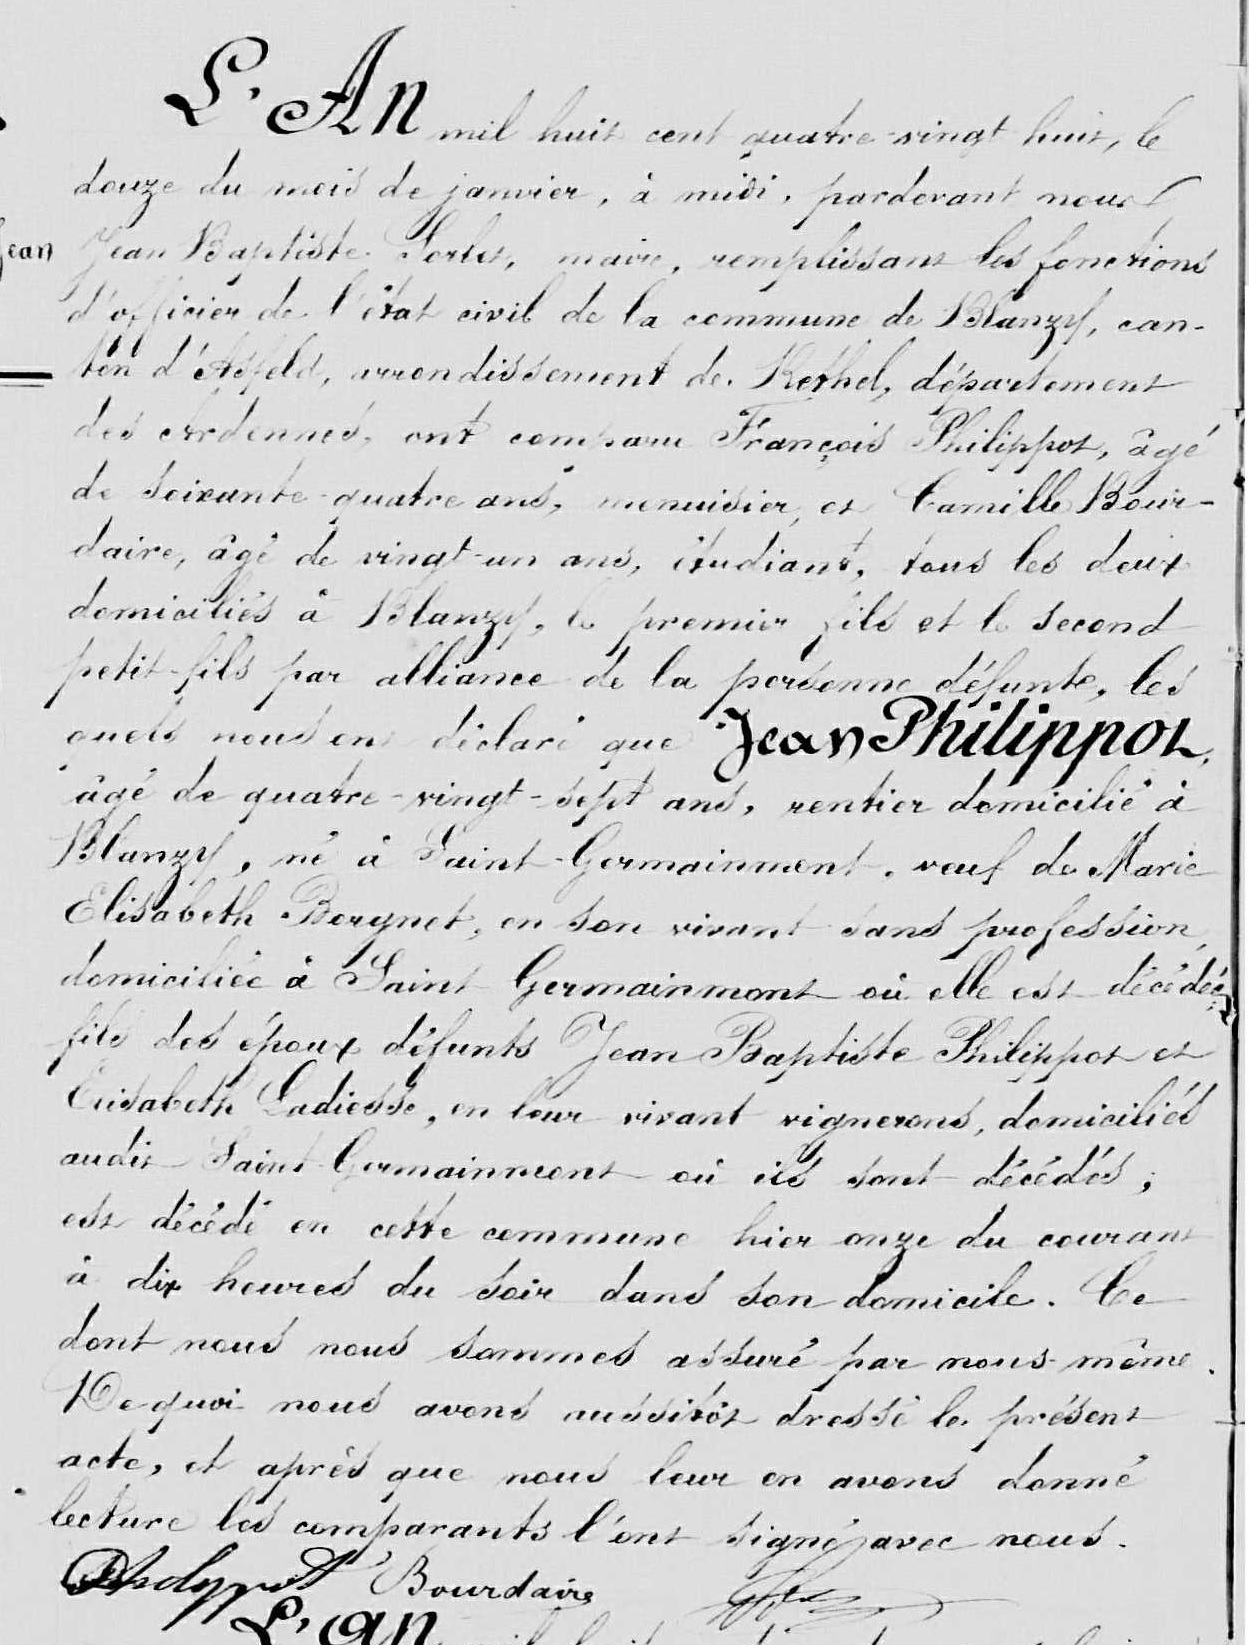 L'An mil huit cent quatre-vingt huit, le
douze du mois de janvier, à midi, pardevant nous
Jean Jean Baptiste maire, remplissant les fonctions
d'officier de l'état civil de la commune de Blanzy, can-
ton d'Asfeld, arrondissement de Rethel, département
des Ardennes, ont comparu François Philippot, âgé
de soixante-quatre ans, menuisier, et Camille Bour-
daire, âgé de vingt-un ans, étudiant, tous les deux
domiciliés à Blanzy, le premier fils et le second
petit-fils par alliance de la personne défunte, les
quels nous ont déclaré que Jean Philippot,
âgé de quatre-vingt-sept ans, rentier domicilié à
Blanzy, né à Saint-Germainmont, veuf de Marie
Elisabeth Bergnet, en son vivant sans profession,
domiciliée à Saint Germainmont où elle est décédée,
fils des époux défunts Jean Baptiste Philippot et
Elisabeth Ladiesse, en leur vivant vignerons, domiciliés
audit Saint-Germainmont où ils sont décédés;
est décédé en cette commune hier onze du courant
à dix heures du soir dans son domicile. Ce
dont nous nous sommes assuré par nous-même.
De quoi nous avons aussitôt dressé le présent
acte, et après que nous leur en avons donné
lecture les comparants l'ont signé avec nous.
Philippot Bourdaire
L'an